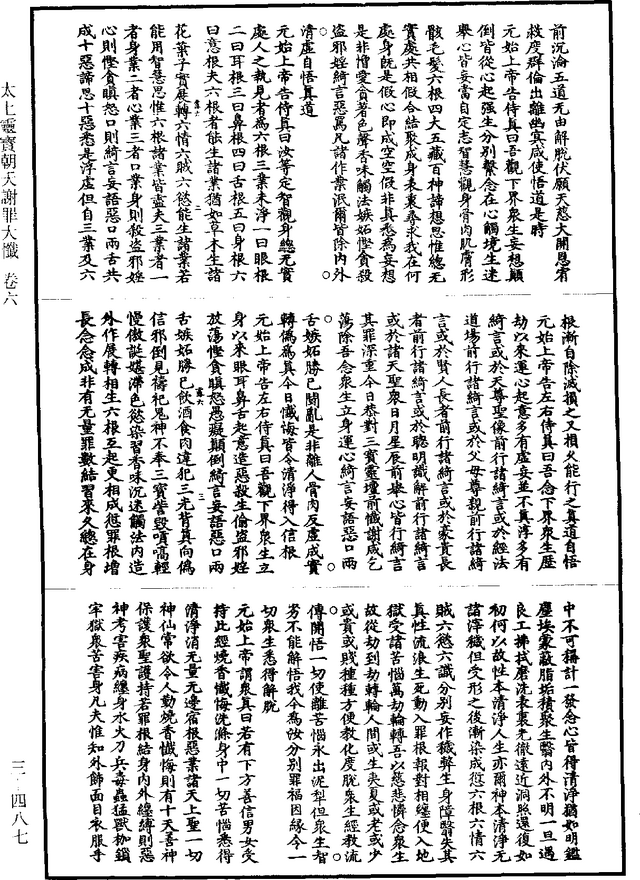 前沉淪五道无由解脫伏願天慈大開恩宥
救度群倫出離幽冥咸使悟道是時
元始上帝告侍真曰吾觀下界衆生妄想顛
倒皆從心起强生分别繫念在心觸境生迷
舉心皆妄當自定志智慧觀身骨肉肌膚形
骸毛髮六根四大五藏百神諦想思惟總无
實處共相假合結聚成身表裏尋求我在何
處身旣是假心即成空空假非真悉為妄想
是非憎愛貪著色聲香味觸法嫉妬慳貪殺
盜邪婬綺言惡罵凡諸作業泯爾皆除内外
清虛自悟真道
元始上帝告侍真曰汝等定智觀身總无實
處人之執見者為六根三業未淨一曰眼根
二曰耳根三曰鼻根四曰舌根五曰身根六
曰意根夫六根者能生諸業猶如草木生諸
花葉子實展轉六情六賊六慾能生諸業若
能用智慧思惟六根諸業皆盡夫三業者一
者身業二者心業三者口業身則殺盜邪婬
心則慳貪瞋怒口則綺言妄語惡口兩舌共
成十惡諦思十惡悉是浮虛但自三業及六
根漸自除滅損之又損久能行之真道自悟
元始上帝告左右侍真曰吾念下界衆生歷
劫以來運心起意多有虛妄並不真淳多有
綺言或於天尊聖像前行諸綺言或於經法
道場前行諸綺言或於父母尊親前行諸綺
言或於賢人長者前行諸綺言或於豪貴長
者前行諸綺言或於聰明識解前行諸綺言
或於諸天聖衆日月星辰前舉心皆行綺言
其罪深重今日恭對三寶靈壇前懺謝咸乞
蕩除吾念衆生立身運心綺言妄語惡口兩
舌嫉妬勝己鬬亂是非離人骨肉反虛成實
轉僞為真今日懺悔皆令清淨得入信根
元始上帝告左右侍真曰吾觀下界衆生立
身以來眼耳鼻舌起意造惡殺生偷盜邪婬
放蕩慳貪瞋怒愚癡顛倒綺言妄語惡口兩
舌嫉妬勝己飲酒食肉違犯三元背真向僞
信邪倒見禱祀鬼神不奉三寶訾毀輕
慢傲誕嬉滯色慾染習香味沉迷觸法内造
外作展轉相生六根互起更相成愆罪根增
長念念成非有无量罪數結習來久總在身
中不可稱計一發念心皆得清淨猶如明鑑
塵埃蒙蔽脂垢積聚生翳内外不明一旦遇
良工拂拭磨洗表裏光徹遠近洞照還復如
初何以故性本清淨人生亦爾神本清淨无
諸滓穢但受形之後漸染成愆六根六情六
賊六慾六識分别妄作穢弊生身障翳失其
真性流浪生死動入罪根報對相纏便入地
獄受諸苦惱萬劫輪轉吾以慈悲憐念衆生
故從劫到劫轉輪人間或生夷夏或老或少
或貴或賤種種方便教化度脫衆生經教流
傳開悟一切使離苦惱永出泥犁但衆生智
劣不能解悟我今為汝分别罪福因緣令一
切衆生悉得解脫
元始上帝謂衆真曰若有下方善信男女受
持此經燒香懺悔洗滌身中一切苦惱悉得
清淨消无量无邊宿根惡業諸天上聖一切
神仙常欲令人勤燒香懺悔則有十天善神
保護衆聖護持若罪根結身内外纏縛則惡
神考害疾病纏身水火刀兵毒蟲猛獸枷鎖
牢獄衆苦害身凡夫惟知外飾面目衣服手
太上靈寶朝天謝罪大懺 卷六
三—四八七